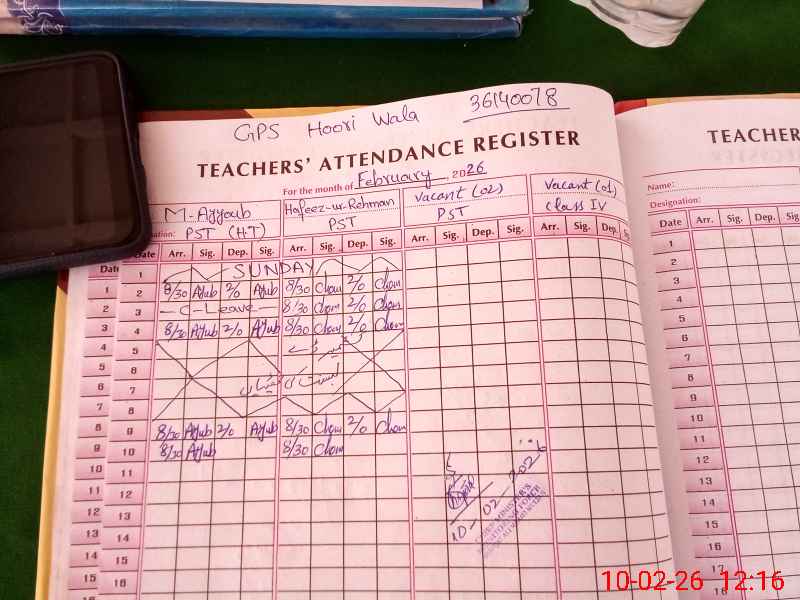 GPS Hoori Wala 36140078
TEACHERS' ATTENDANCE REGISTER
For the month of February 2026
M-Ayyoub Hafeez-ur-Rehman Vacant (02) Vacant (01)
PST (H.T) PST PST Class IV
Date Arr. Sig. Dep. Sig. Arr. Sig. Dep. Sig. Arr. Sig. Dep. Sig. Arr. Sig. Dep.
1 SUNDAY
2 8/30 Ayub 2/0 Ayub 8/30 Chom 2/0 Chom
3 -C-Leave- 8/30 Chom 2/0 Chom
4 8/30 Ayub 2/0 Ayub 8/30 Chom 2/0 Chom
5
6
7
8
9 8/30 Ayub 2/0 Ayub 8/30 Chom 2/0 Chom
10 8/30 Ayub 8/30 Chom
11
12
13
14
15
16
10-02-2026
Date
1
2
3
4
5
6
7
8
9
10
11
12
13
14
15
TEACHER
REGISTER
Name:
Designation:
Date Arr. Sig. Dep. Sig.
1
2
3
4
5
6
7
8
9
10
11
12
13
14
15
16
17
18
10-02-26 12:16